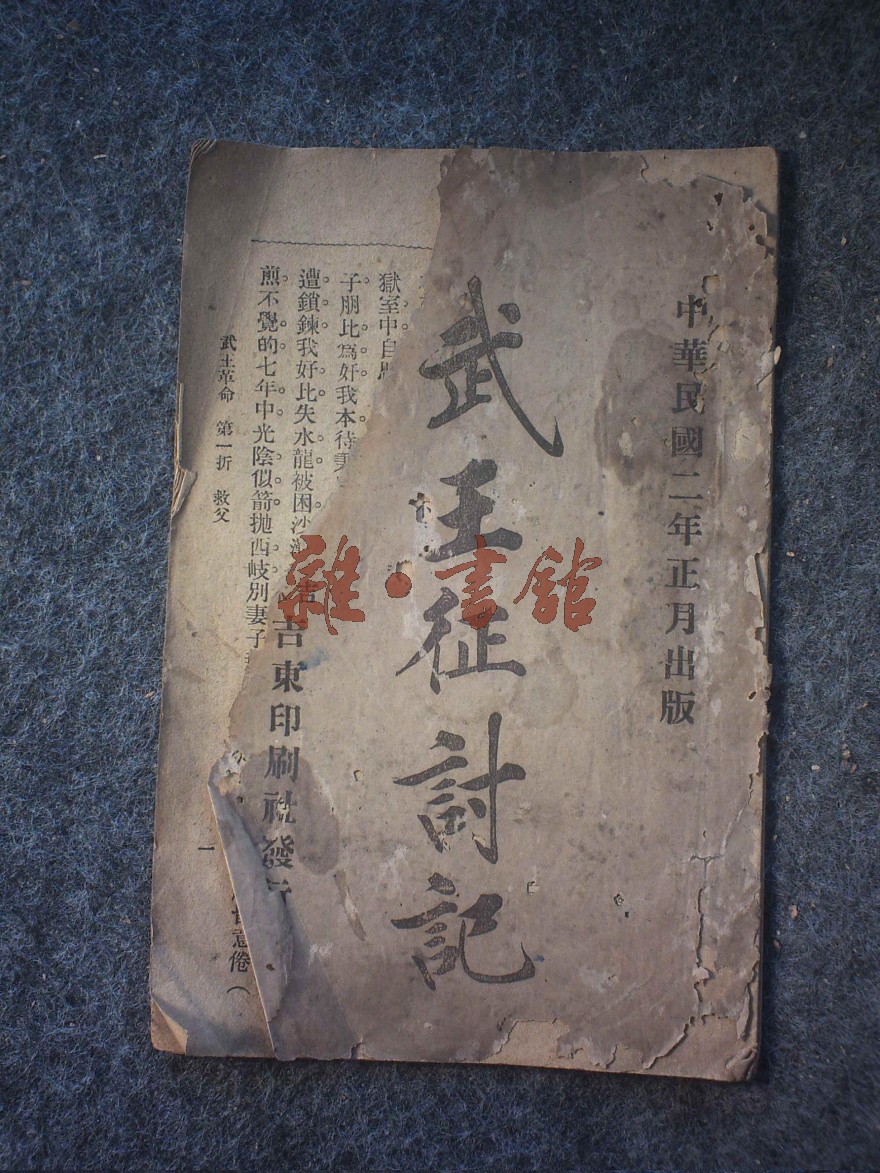 中華民國二年正月出版
武王征討記
吉東印刷社發行
獄室中自
子朋比為奸我本待
遭鎖鍊我好比失水龍被困沙
煎不覺的七年中光陰似箭拋西岐別妻子
意倦（
武王革命 第一折 救父
一
雜·書館